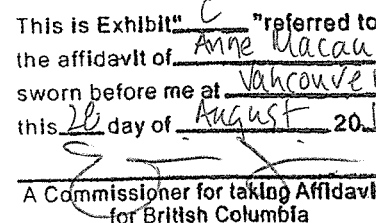 This is Exhibit" C "referred to
the affidavit of Anne Macau
sworn before me at Vancouve
this 20 day of August 20
A Commissioner for taking Affidavi
for British Columbia